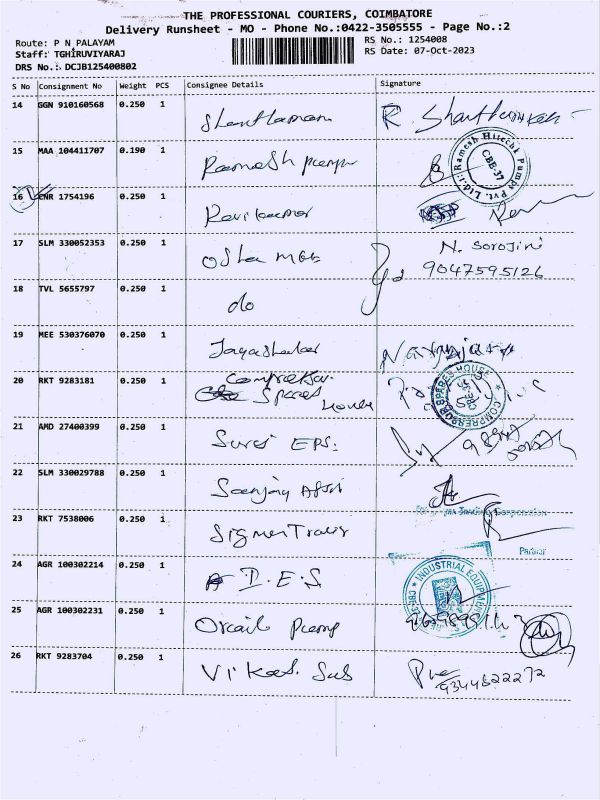 THE PROFESSIONAL COURIERS, COIMBATORE
Delivery Runsheet - MO - Phone No.:0422-3505555 - Page No.:2
Route: P N PALAYAM
Staff: TGHIRUVIYARAJ
DRS No.: DCJB125400802
RS No.: 1254008
RS Date: 07-Oct-2023
S No Consignment No Weight PCS Consignee Details Signature
14 GGN 910160568 0.250 1
15 MAA 104411707 0.190 1 Ramesh pump
Ramesh Hitech Pumps Pvt. Ltd.
CBE-37
16 CNR 1754196 0.250 1 Ravikumar
17 SLM 330052353 0.250 1 N. Sorojini
9047595126
18 TVL 5655797 0.250 1 do
19 MEE 530376070 0.250 1 Jayashankar
20 RKT 9283181 0.250 1 Spares House
COMPRESSOR SPARES HOUSE
21 AMD 27400399 0.250 1 EPS.
22 SLM 330029788 0.250 1 Sanjay
Trading Corporation
23 RKT 7538006 0.250 1
Partner
24 AGR 100302214 0.250 1 D.E.S
INDUSTRIAL EQUIPMENT
25 AGR 100302231 0.250 1 Pump
26 RKT 9283704 0.250 1 Vikas Sub
9344622272